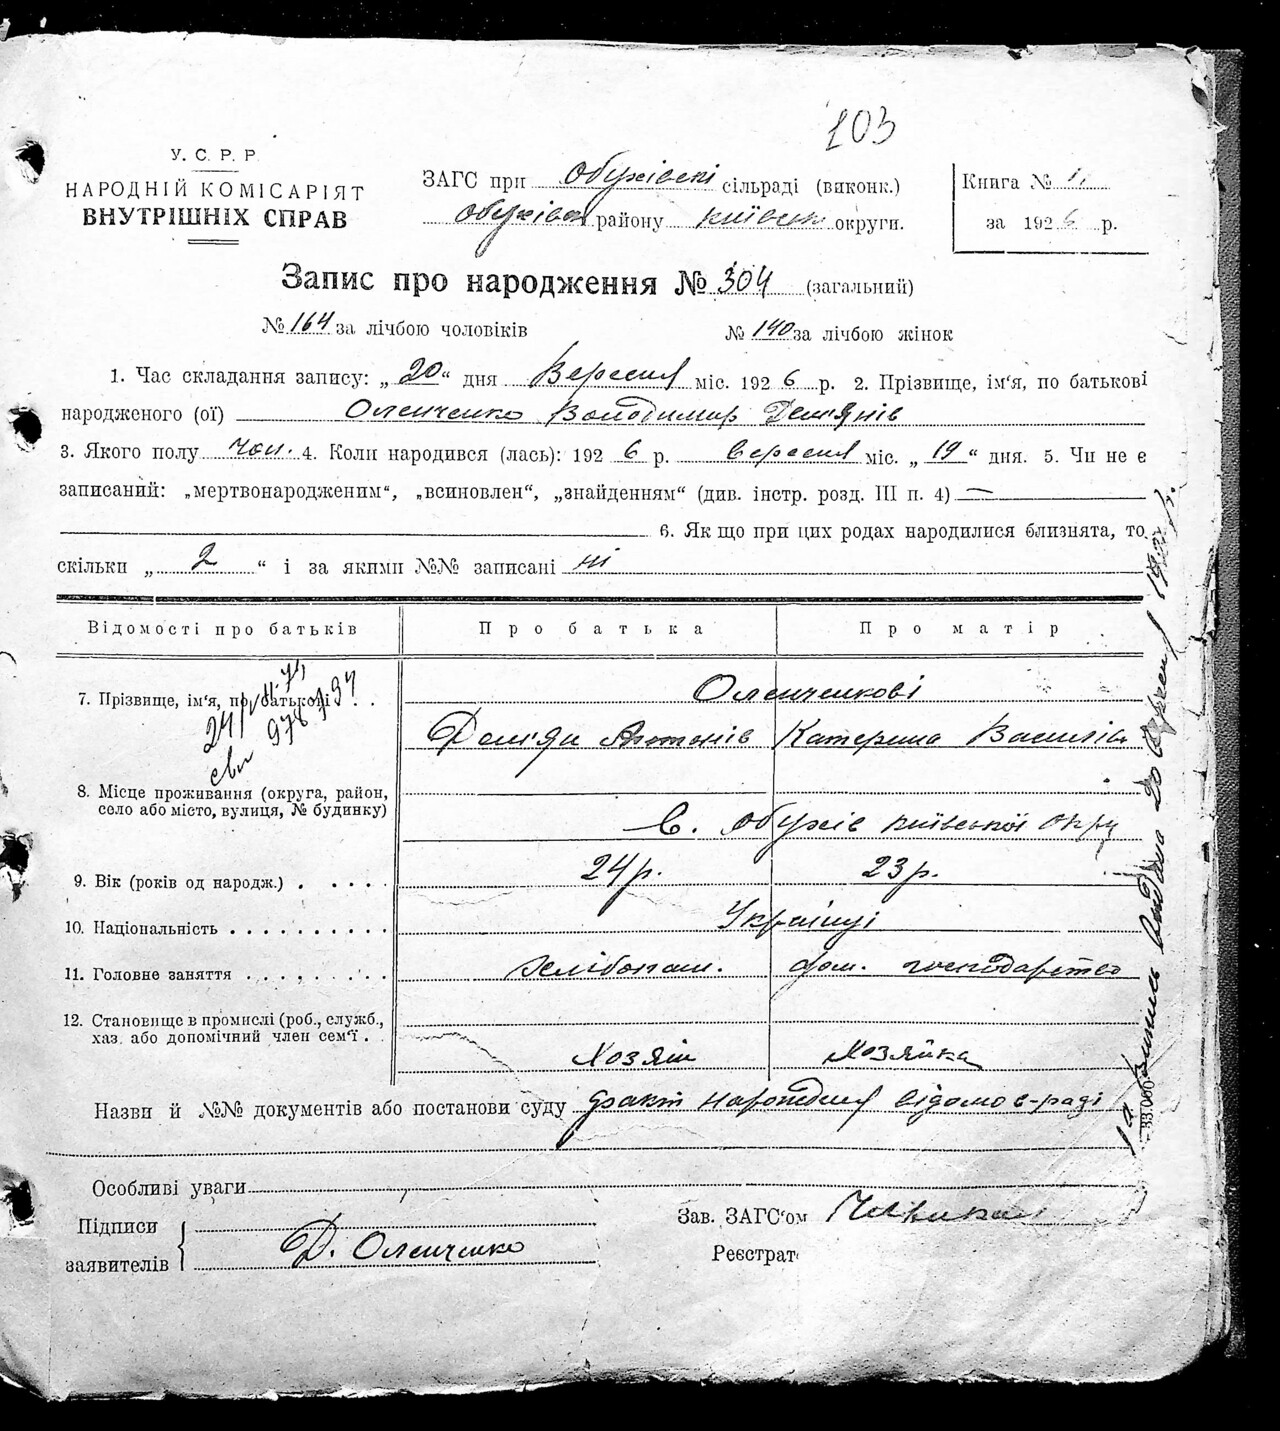 103
У. С. Р. Р.
НАРОДНІЙ КОМІСАРІЯТ
ВНУТРІШНІХ СПРАВ
ЗАГС при Обухівскі сільраді (виконк.)
Обухівск району Київськ округи.
Книга № 11
за 1926 р.
Запис про народження № 304 (загальний)
№ 164 за лічбою чоловіків № 140 за лічбою жінок
1. Час складання запису: „20“ дня Вересня міс. 1926 р. 2. Прізвище, ім'я, по батькові
народженого (ої) Оленченко Володимир Дем'янів
3. Якого полу чол. 4. Коли народився (лась): 1926 р. вересня міс. „19“ дня. 5. Чи не є
записаний: „мертвонародженим“, „всиновлен“, „знайденням“ (див. інстр. розд. III п. 4) —
6. Як що при цих родах народилися близнята, то
скільки „2“ і за якими №№ записані ні
Відомості про батьків Про батька Про матір
7. Прізвище, ім'я, по батькові . . Оленченкові
Дем'ян Антонів Катерина Василів
8. Місце проживання (округа, район,
село або місто, вулиця, № будинку)
с. Обухів Київської окру
9. Вік (років од народж.) . . . . . 24 р. 23 р.
10. Національність . . . . . . . . . . Українці
11. Головне заняття . . . . . . . . . Хлібопаш. дом. господарство
12. Становище в промислі (роб., служб.,
хаз. або допомічний член сем'ї . .
Хозяін Хозяйка
Назви й №№ документів або постанови суду факт народження відомо с-раді
Особливі уваги
Підписи
заявителів
Д. Оленченко
Зав. ЗАГС'ом
Реєстрат
33.000